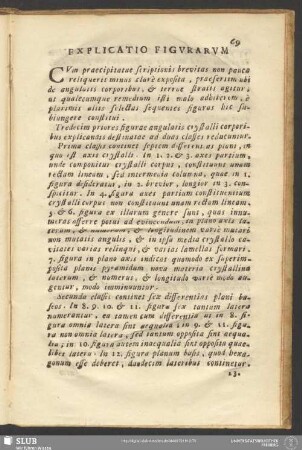 69
EXPLICATIO FIGVRARVM
CVm praecipitatae scriptionis brevitas non pauca
reliquerit minus clarè exposita, praesertim ubi
de angulatis corporibus, & terrae stratis agitur,
ut qualecumque remedium isti malo adhiberem, è
plurimis aliis selectas sequentes figuras hic sub-
iungere constitui.
Tredecim priores figurae angulatis crystalli corpori-
bus explicandis destinatae ad duas classes reducuntur.
Prima classis continet septem differentias plani, in
quo est axis crystalli. In 1. 2. & 3. axes partium,
unde componitur crystalli corpus, constituunt unam
rectam lineam, sed intermedia columna, quae in 1.
figura desideratur, in 2. brevior, longior in 3. con-
spicitur. In 4. figura axes partium constituentium
crystalli corpus non constituunt unam rectam lineam.
5. & 6. figura ex illarum genere sunt, quas innu-
meras afferre possem ad in plano axis la-
terum, & longitudinem variè mutari
non mutatis angulis, & in ipsa media crystalli ca-
vitates varias relinqui, & varias lamellas formari.
7. figura in plano axis indicat quomodo ex superim-
posita planis pyramidum nova materia crystallina
laterum, & numerus, & longitudo variè modo au-
gentur, modo imminuuntur.
Secunda classis continet sex differentias plani ba-
seos. In 8. 9. 10. & 11. figura sex tantum latera
numerantur, ea tamen cum differentia ut in 8. fi-
gura omnia latera sint aequalia, in 9. & 11. figu-
ra non omnia latera, sed tantum opposita sint aequa-
lia; in 10. figura autem inaequalia sint opposita quae-
libet latera. In 12. figura planum basis, quod hexa-
gonum esse deberet, duodecim lateribus continetur.
13.
SLUB